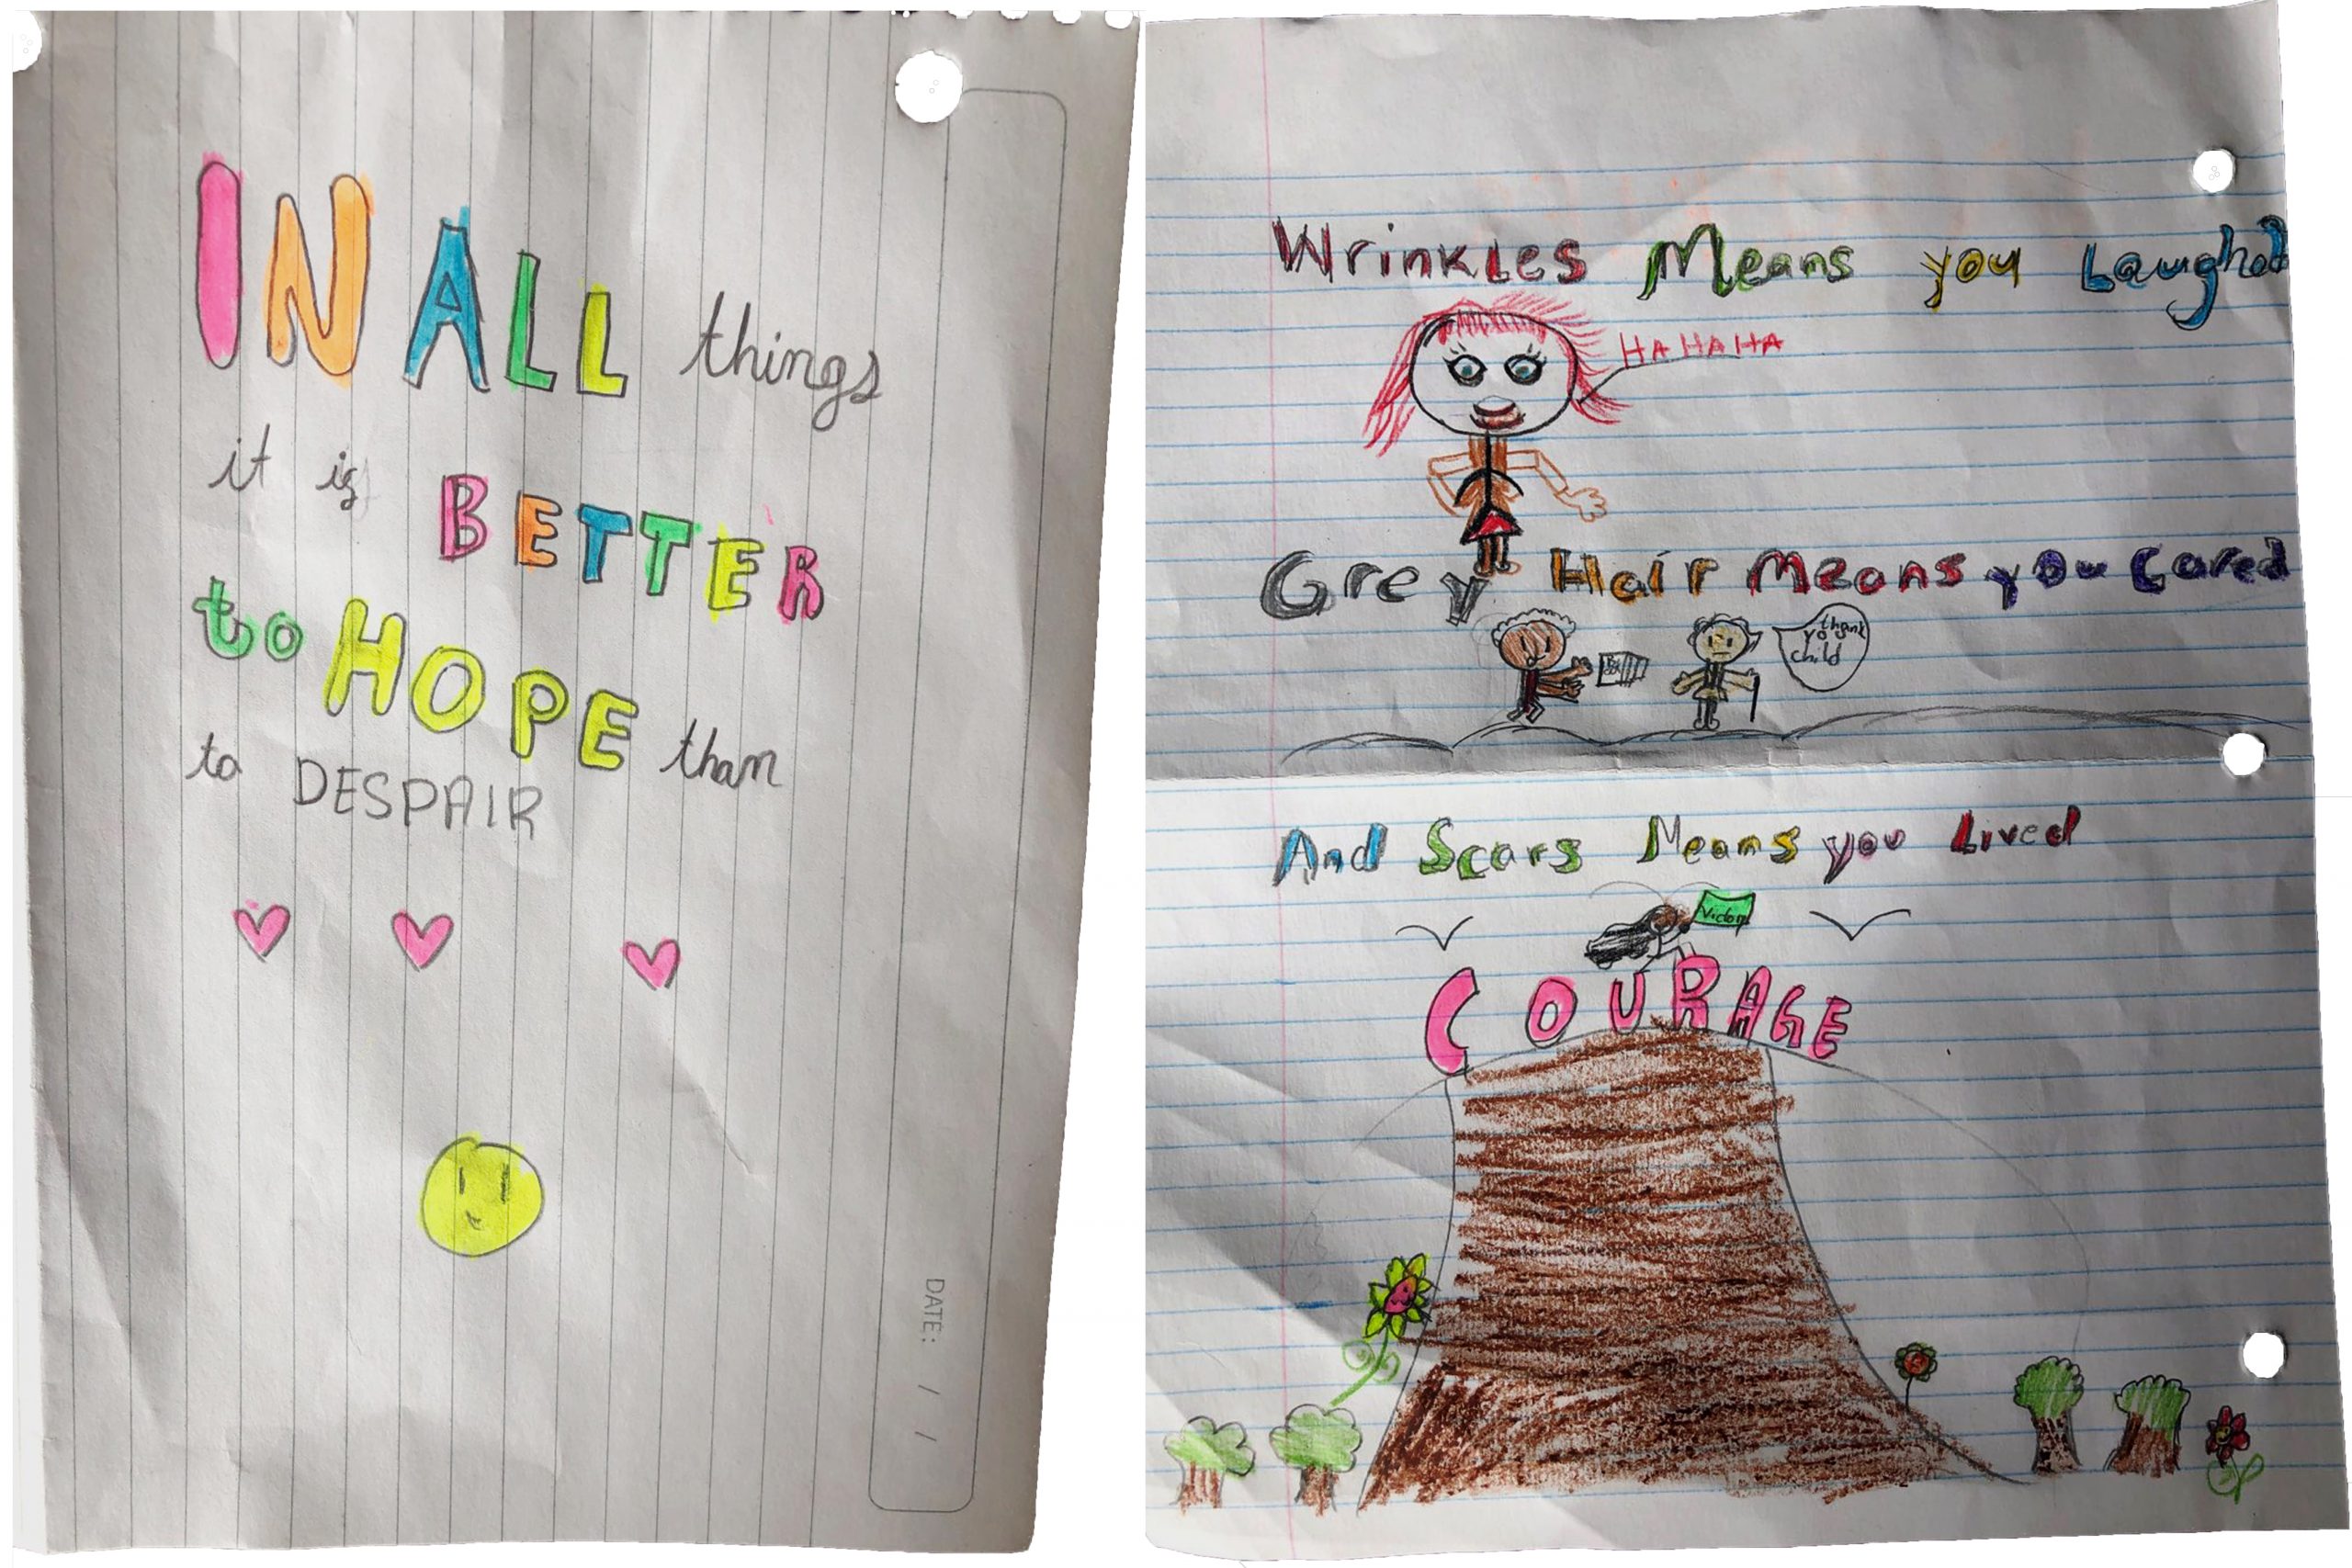 IN ALL things
it is BETTER
to HOPE than
to DESPAIR
DATE: / /
Wrinkles Means you Laughed
HA HA HA
Grey Hair Means you Cared
thank
yo
child
And Scars Means you Lived
COURAGE